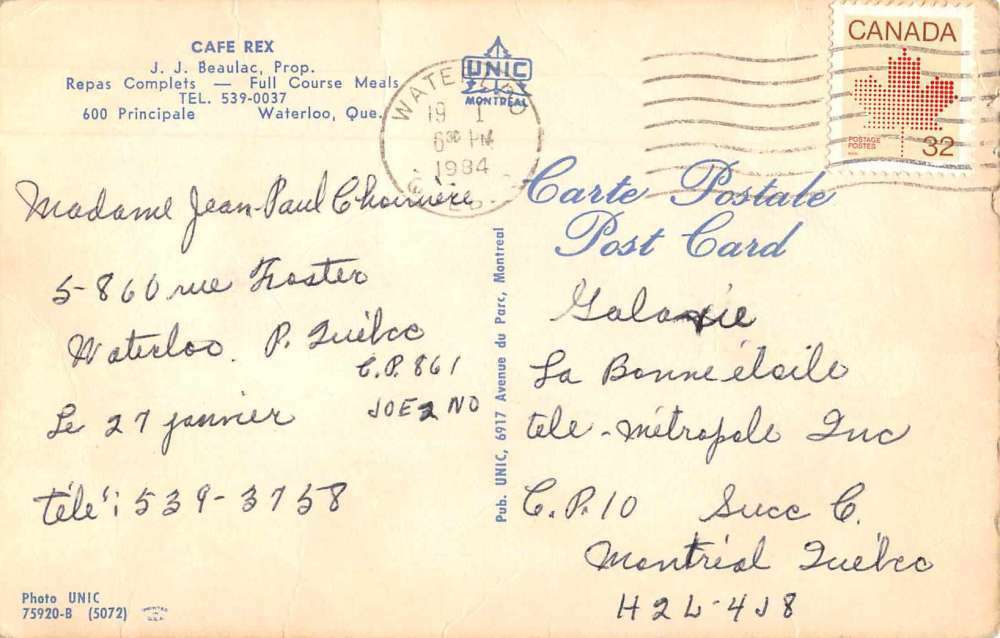 CAFE REX
J. J. Beaulac, Prop.
Repas Complets — Full Course Meals
TEL. 539-0037
600 Principale Waterloo, Que.
UNIC
MONTREAL
WATERLOO
19 I
6 30 PM
1984
CANADA
POSTAGE
POSTES
32
Carte Postale
Post Card
Madame Jean-Paul
5-860 rue Foster
Waterloo. P. Québec
C.P. 861
JOE 2 NO
Le 27 janvier
télé: 539-3758
Pub. UNIC, 6917 Avenue du Parc, Montreal
Galaxie
La Bonne étoile
tele-métropole Inc
C.P. 10 Succ C.
Montréal Québec
H2L-4J8
Photo UNIC
75920-B (5072)